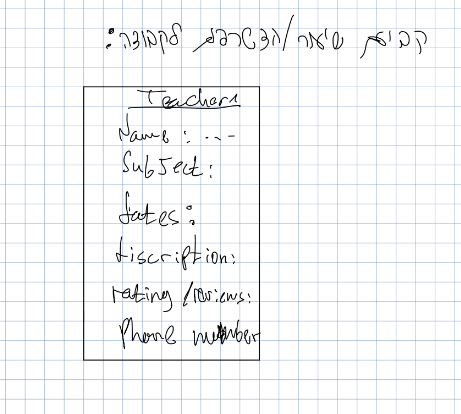 קביעת שיעור/הצטרפות לקבוצה:
Teachers
Name: ...
Subject:
dates:
discription:
rating/reviews:
Phone number